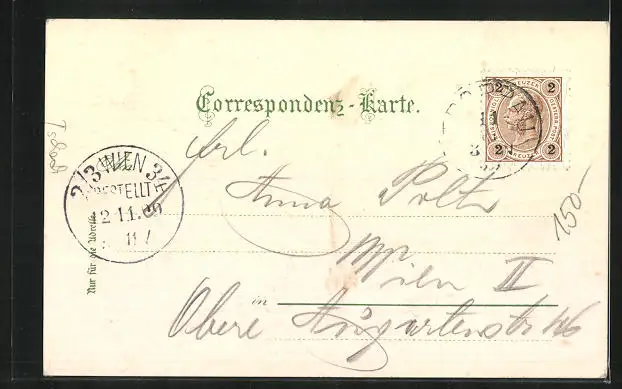 Correspondenz-Karte.
2 KREUZER 2
2 KREUZER 2
Frl.
Anna Poltz
Wien II
in
Obere Augartenstr 46
2/3 WIEN 3/4
BESTELLT
2.11.99
11 /
Nur für die Adresse.
150-